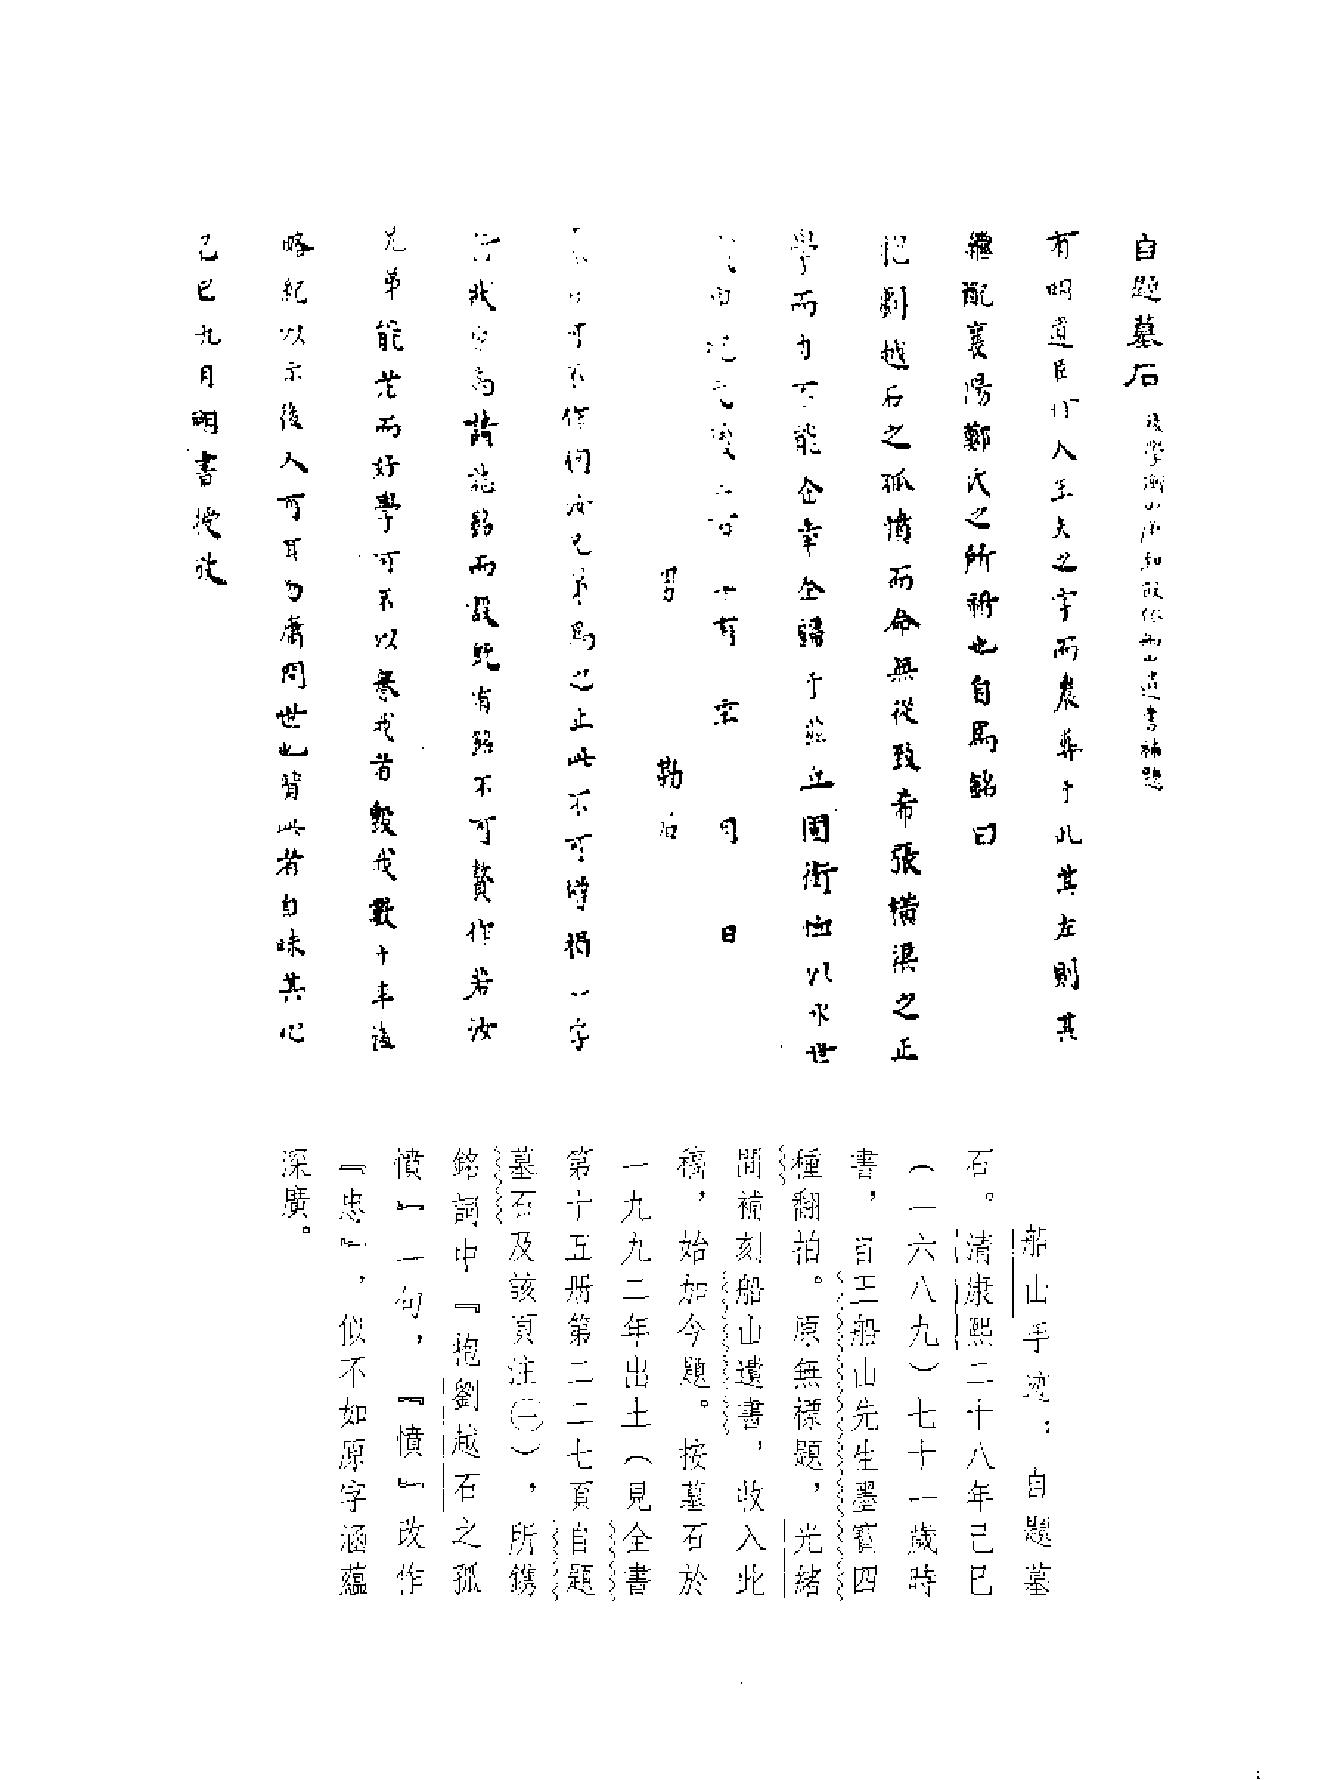 自題墓石
後學衡山 補題
有明遺臣行人王夫之字而農葬于此其左則其
繼配襄陽鄭氏之所祔也自爲銘曰
抱劉越石之孤憤而命無從致希張橫渠之正
學而力不能企幸全歸于茲丘固銜恤以永世
有 月 日
男 勒石
可不作徇汝兄弟爲之止此不可增損一字
行狀 誌銘而設既有銘不可贅作若汝
兄弟能老而好學可不以譽我者毀我數十年後
略紀以示後人可耳勿庸問世也背此者自昧其心
己巳九月朔書授攽
船山手迹：自題墓
石。清康熙二十八年己巳
（一六八九）七十一歲時
書，自王船山先生墨寶四
種翻拍。原無標題，光緒
間補刻船山遺書，收入此
稿，始加今題。按墓石於
一九九二年出土（見全書
第十五册第二二七頁自題
墓石及該頁注㊀），所鐫
銘詞中『抱劉越石之孤
憤』一句，『憤』改作
『忠』，似不如原字涵蘊
深廣。